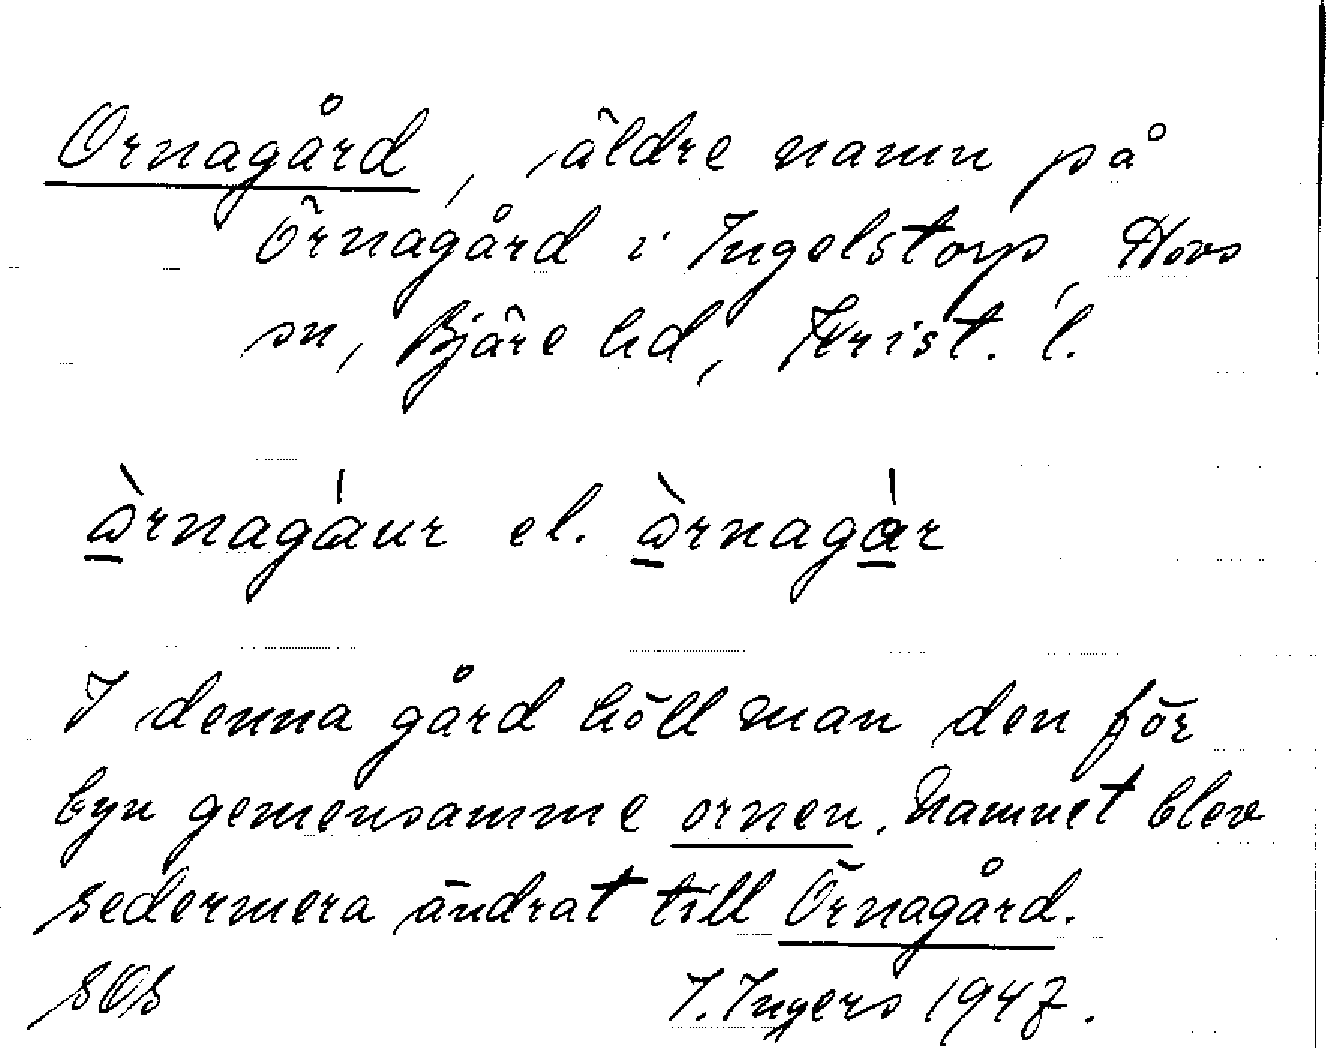 Ornagård, äldre namn på
Örnagård i Ingelstorp, Hovs
sn, Bjäre hd, Krist. l.
òrnagáur el. òrnagàr
I denna gård höll man den för
byn gemensamme ornen. Namnet blev
sedermera ändrat till Örnagård.
SOS I. Ingers 1947.